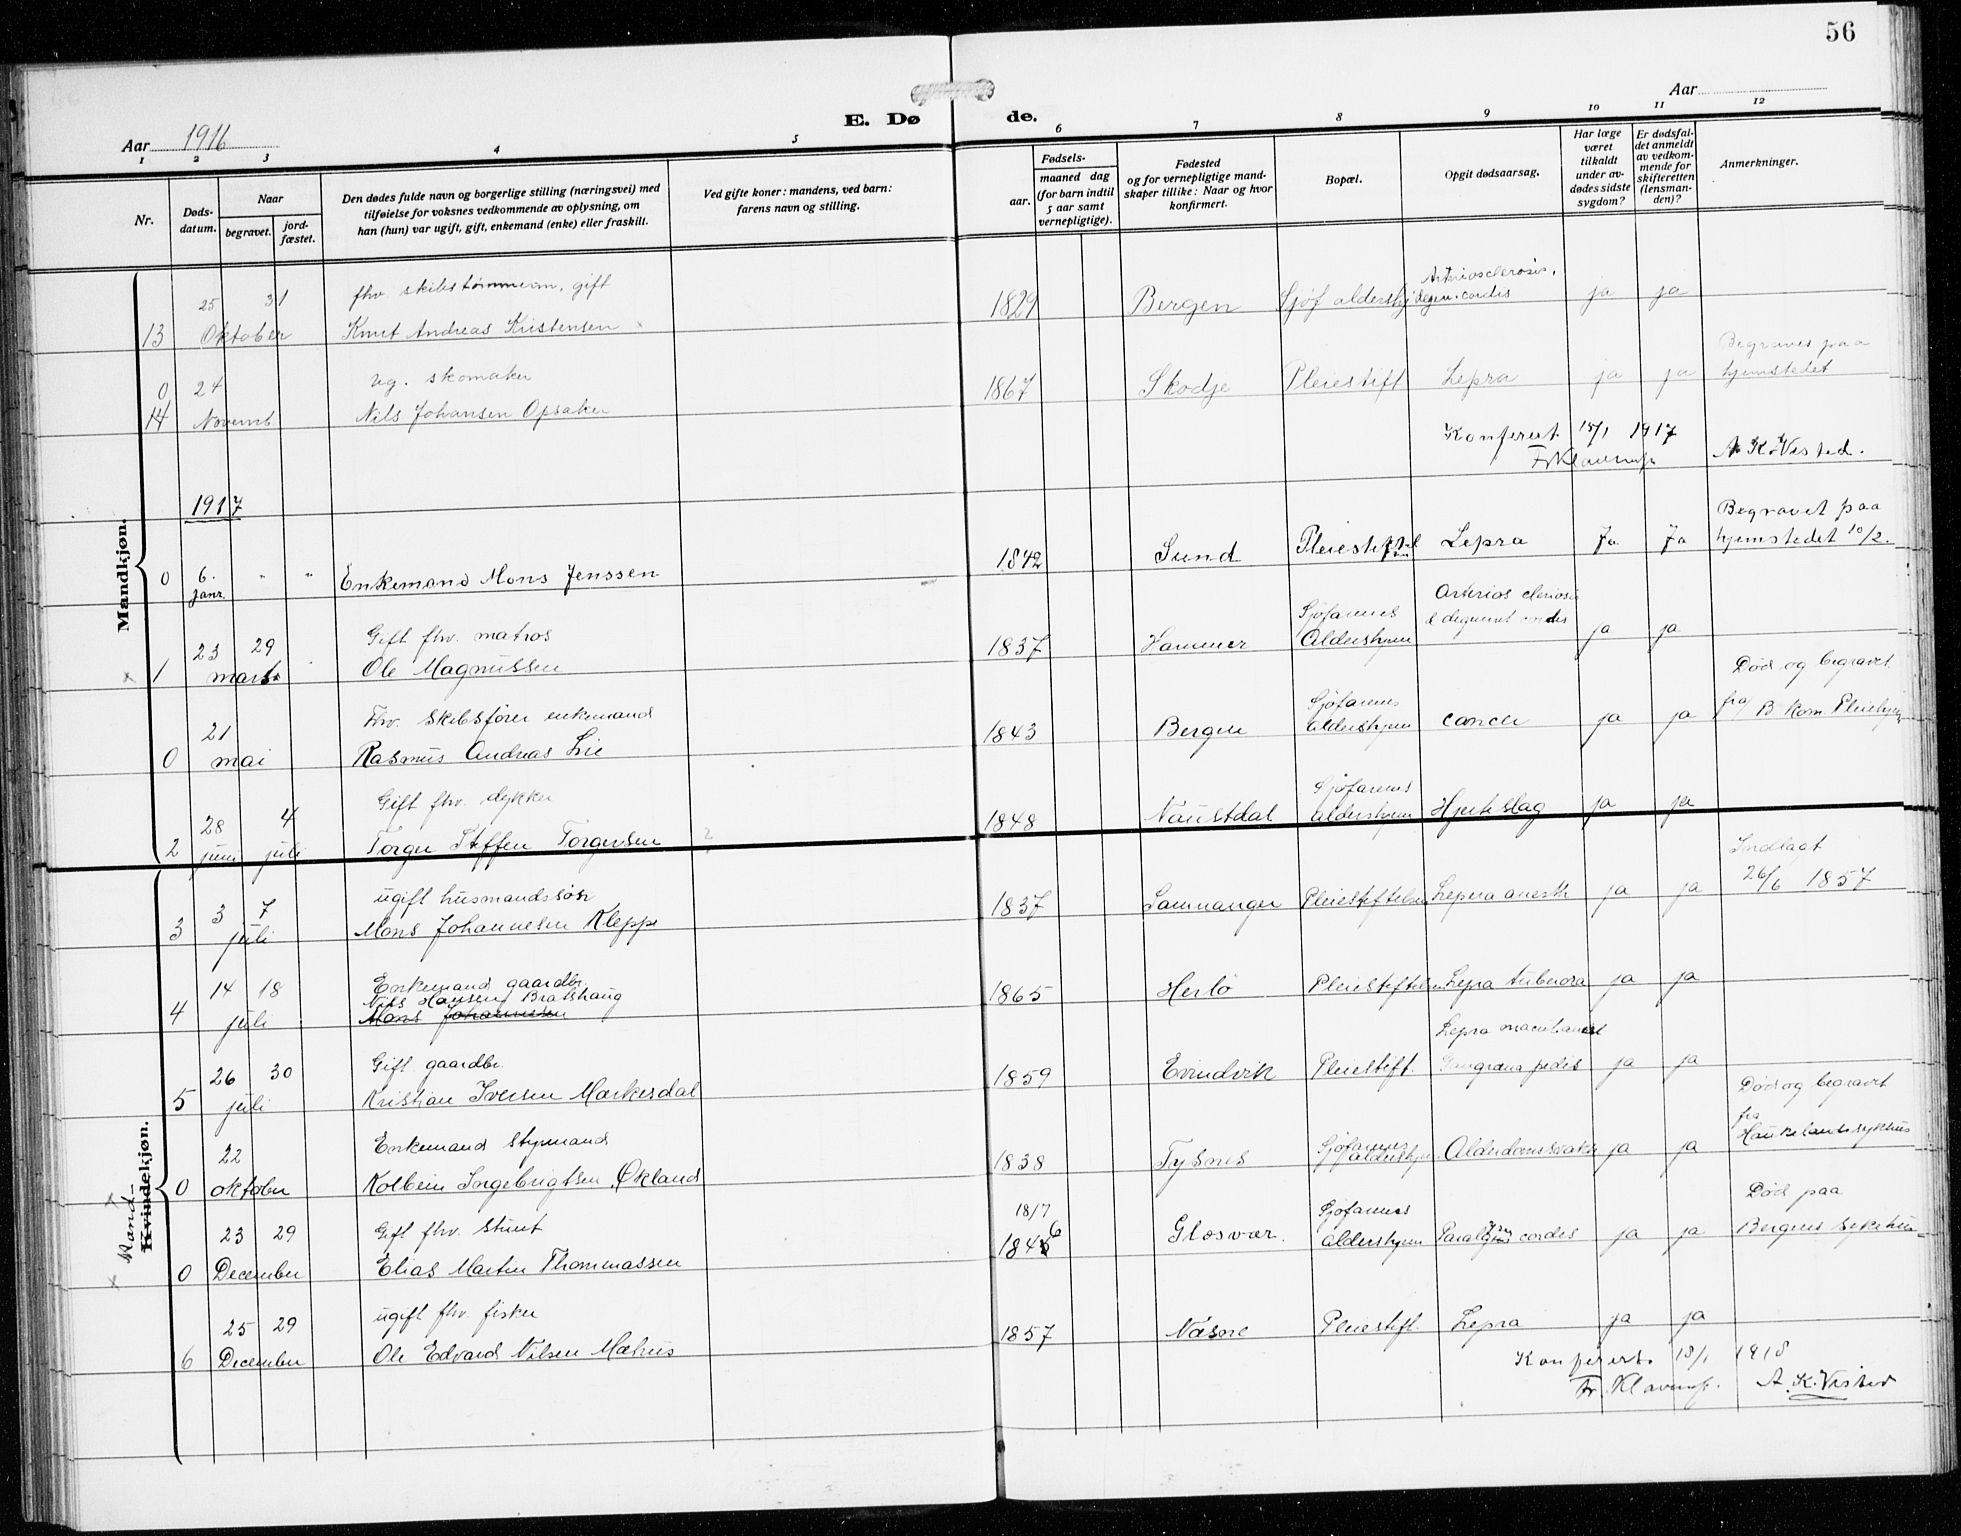 56
E. Døde.
Aar 1916
Aar
1 2 3 4 5 6 7 8 9 10 11 12
Nr.
Døds-datum.
Naar
begravet.
jord-fæstet.
Den dødes fulde navn og borgerlige stilling (næringsvei) med
tilføielse for voksnes vedkommende av oplysning, om
han (hun) var ugift, gift, enkemand (enke) eller fraskilt.
Ved gifte koner: mandens, ved barn:
farens navn og stilling.
Fødsels-
aar.
maaned dag
(for barn indtil
5 aar samt
vernepligtige).
Fødested
og for vernepligtige mand-
skaper tillike: Naar og hvor
konfirmert.
Bopæl.
Opgit dødsaarsag.
Har læge
været
tilkaldt
under av-
dødes sidste
sygdom?
Er dødsfal-
det anmeldt
av vedkom-
mende for
skifteretten
(lensman-
den)?
Anmerkninger.
Mandkjøn.
25 31 fhv. skibstømmerm. gift
13 Oktober Knut Andreas Kristensen
1829 Bergen Sjøf aldershj Arteriosclerosis, degen. cordis ja ja
0 24 ug. skomaker
14 Novemb Nils Johansen Opsaker
1867 Skodje Pleiestift Lepra ja ja Begraves paa
hjemstedet
Konferert 15/1 1917
A. K. Visted.
1917
0 6. Janr. " " Enkemand Mons Jenssen
1842 Sund Lepra Ja Ja Begravet paa
hjemstedet 10/2.
23 29 Gift fhv. matros
1 mars Ole Magnussen
1837 Hammer Sjøfarenes
Aldershjem ja ja
21 Fhv. skibsfører enkemand
0 mai Rasmus Andreas Lie
1843 Bergen Sjøfarenes
aldershjem cancer ja ja Død og begravet
fra B. kom. Pleiehjem
28 4 Gift fhv. dykker
2 juni juli Torger Steffen Torgersen
1848 Naustdal Sjøfarenes
aldershjem Hjerteslag ja ja
3 7 ugift husmandssøn
3 juli Mons Johannesen Kleppe
1837 Samnanger Pleiestiftelsen Lepera anesth ja ja Indlagt
26/6 1857
14 18 Enkemand gaardbr.
Nils Hansen Bratshaug
4 juli Mons Johannesen
1865 Herlø Pleiestiftelsen Lepra tuberosa ja ja
26 30 Gift gaardbr.
5 juli Kristian Iversen Mærkesdal
1859 Evindvik Pleiestift. Gangræna pedis ja ja
Mand-
Kvindekjøn.
22 Enkemand styrmand
0 oktober Kolbein Ingebrigtsen Økland
1838 Tysnes Sjøfarenes
aldershjem Alderdomssvakh ja ja Død og begravet
fra
Haukelandssykhus
23 29 Gift fhv. stuert
0 December Elias Martin Thommassen
18/7
1846 Glosvær. Sjøfarenes
aldershjem cordis ja ja Død paa
Bergens sykehus
25 29 ugift fhv. fisker
6 December Ole Edvard Nilsen Mæhus
1857 Næsne Pleiestift. Lepra ja ja
Konferert. 15/1 1918
A. K. Visted